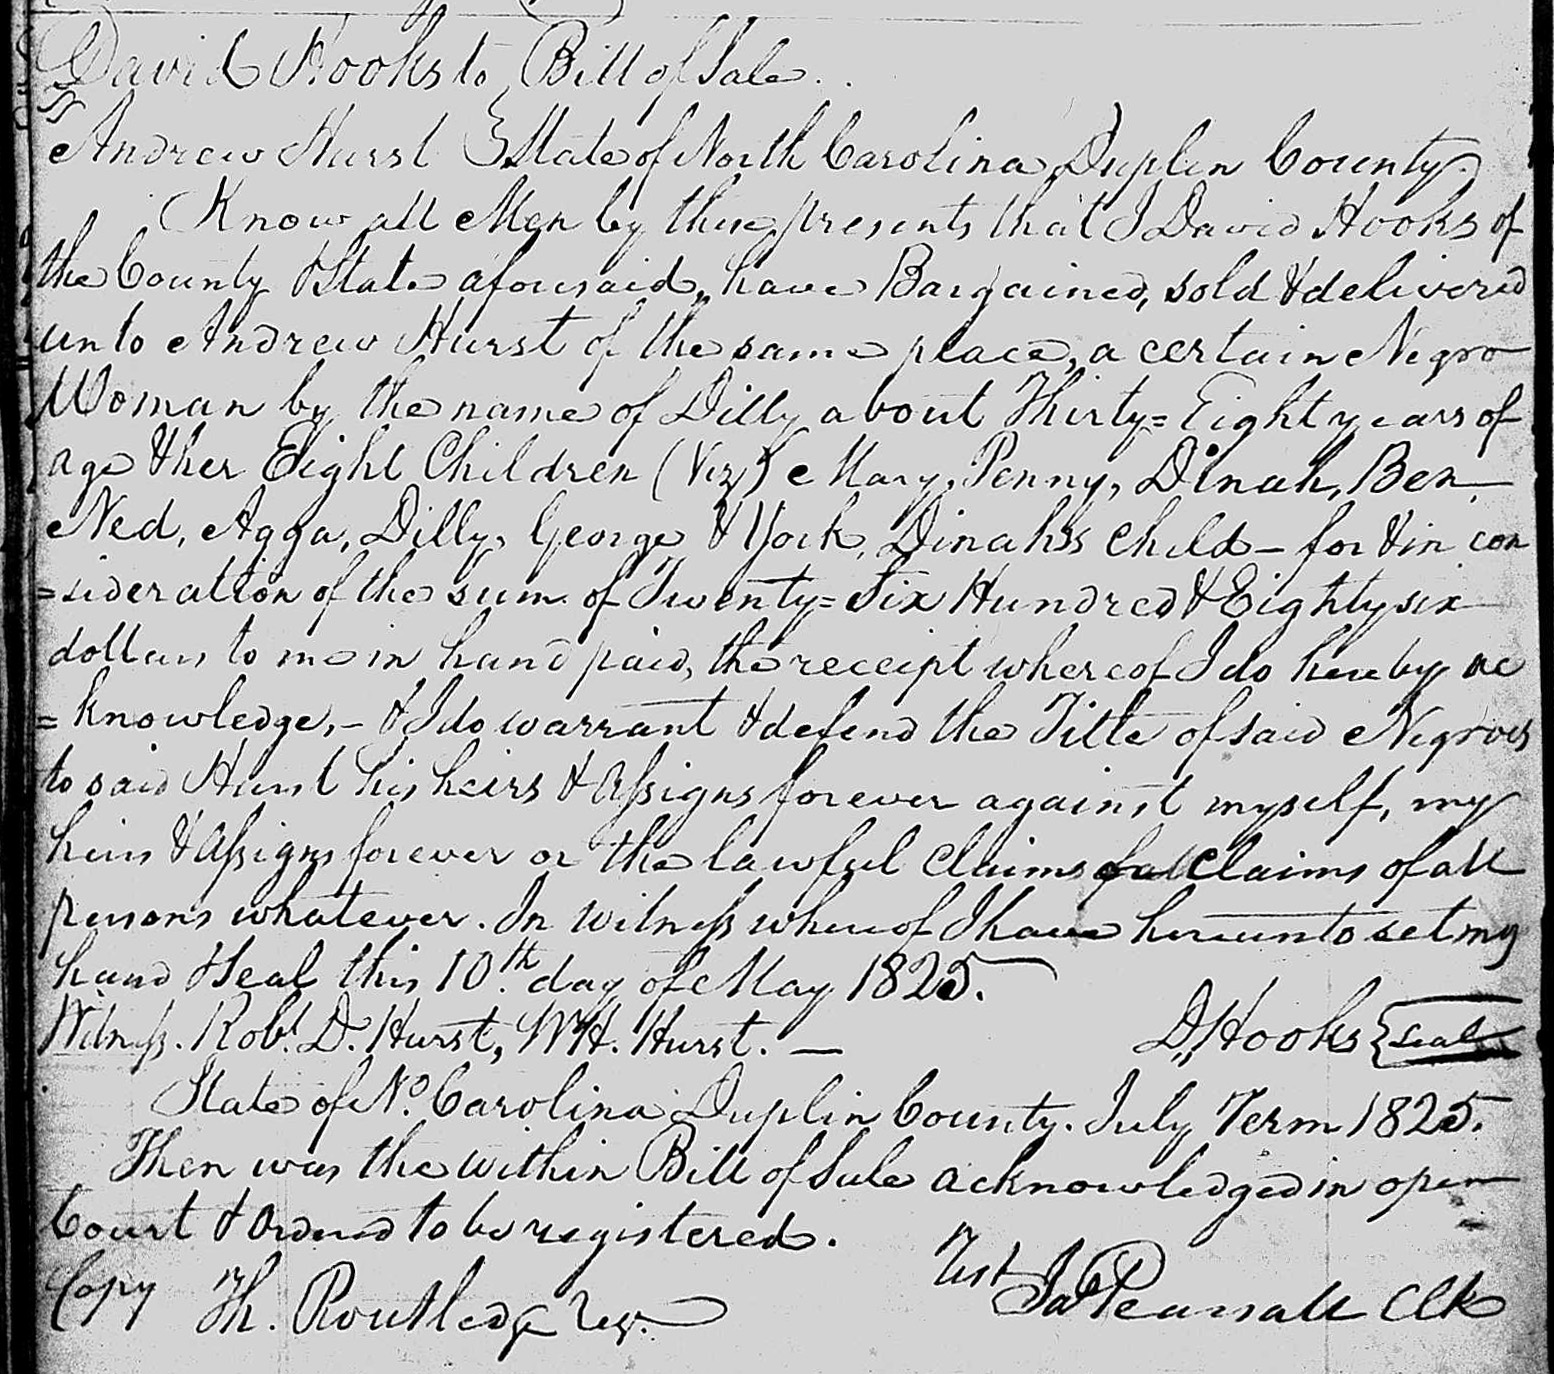 David Hooks to } Bill of Sale.
Andrew Hurst } State of North Carolina Duplin County.
Know all Men by these presents that I David Hooks of
the County & State aforesaid, have Bargained, sold & delivered
unto Andrew Hurst of the same place, a certain Negro
Woman by the name of Dilly about Thirty=Eight years of
age & her Eight Children (Viz) Mary, Penny, Dinah, Ben,
Ned, Agga, Dilly, George & York, Dinah's child – for & in con
=sideration of the sum of Twenty=Six Hundred & Eighty six
dollars to me in hand paid, the receipt whereof I do hereby ac
=knowledge, – & I do warrant & defend the Title of said Negroes
to said Hurst his heirs & assigns forever against myself, my
heirs & assigns forever or the lawful claims of all Claims of all
persons whatever. In Witness whereof I have hereunto set my
hand & Seal this 10th. day of May 1825.
Witness. Robt. D. Hurst, WH. Hurst. — D, Hooks {seal
State of No. Carolina Duplin County. July Term 1825.
Then was the within Bill of Sale acknowledged in open
Court & Ordered to be registered.
Test
Copy Th. Routledge Reg. Jas Pearsall Clk